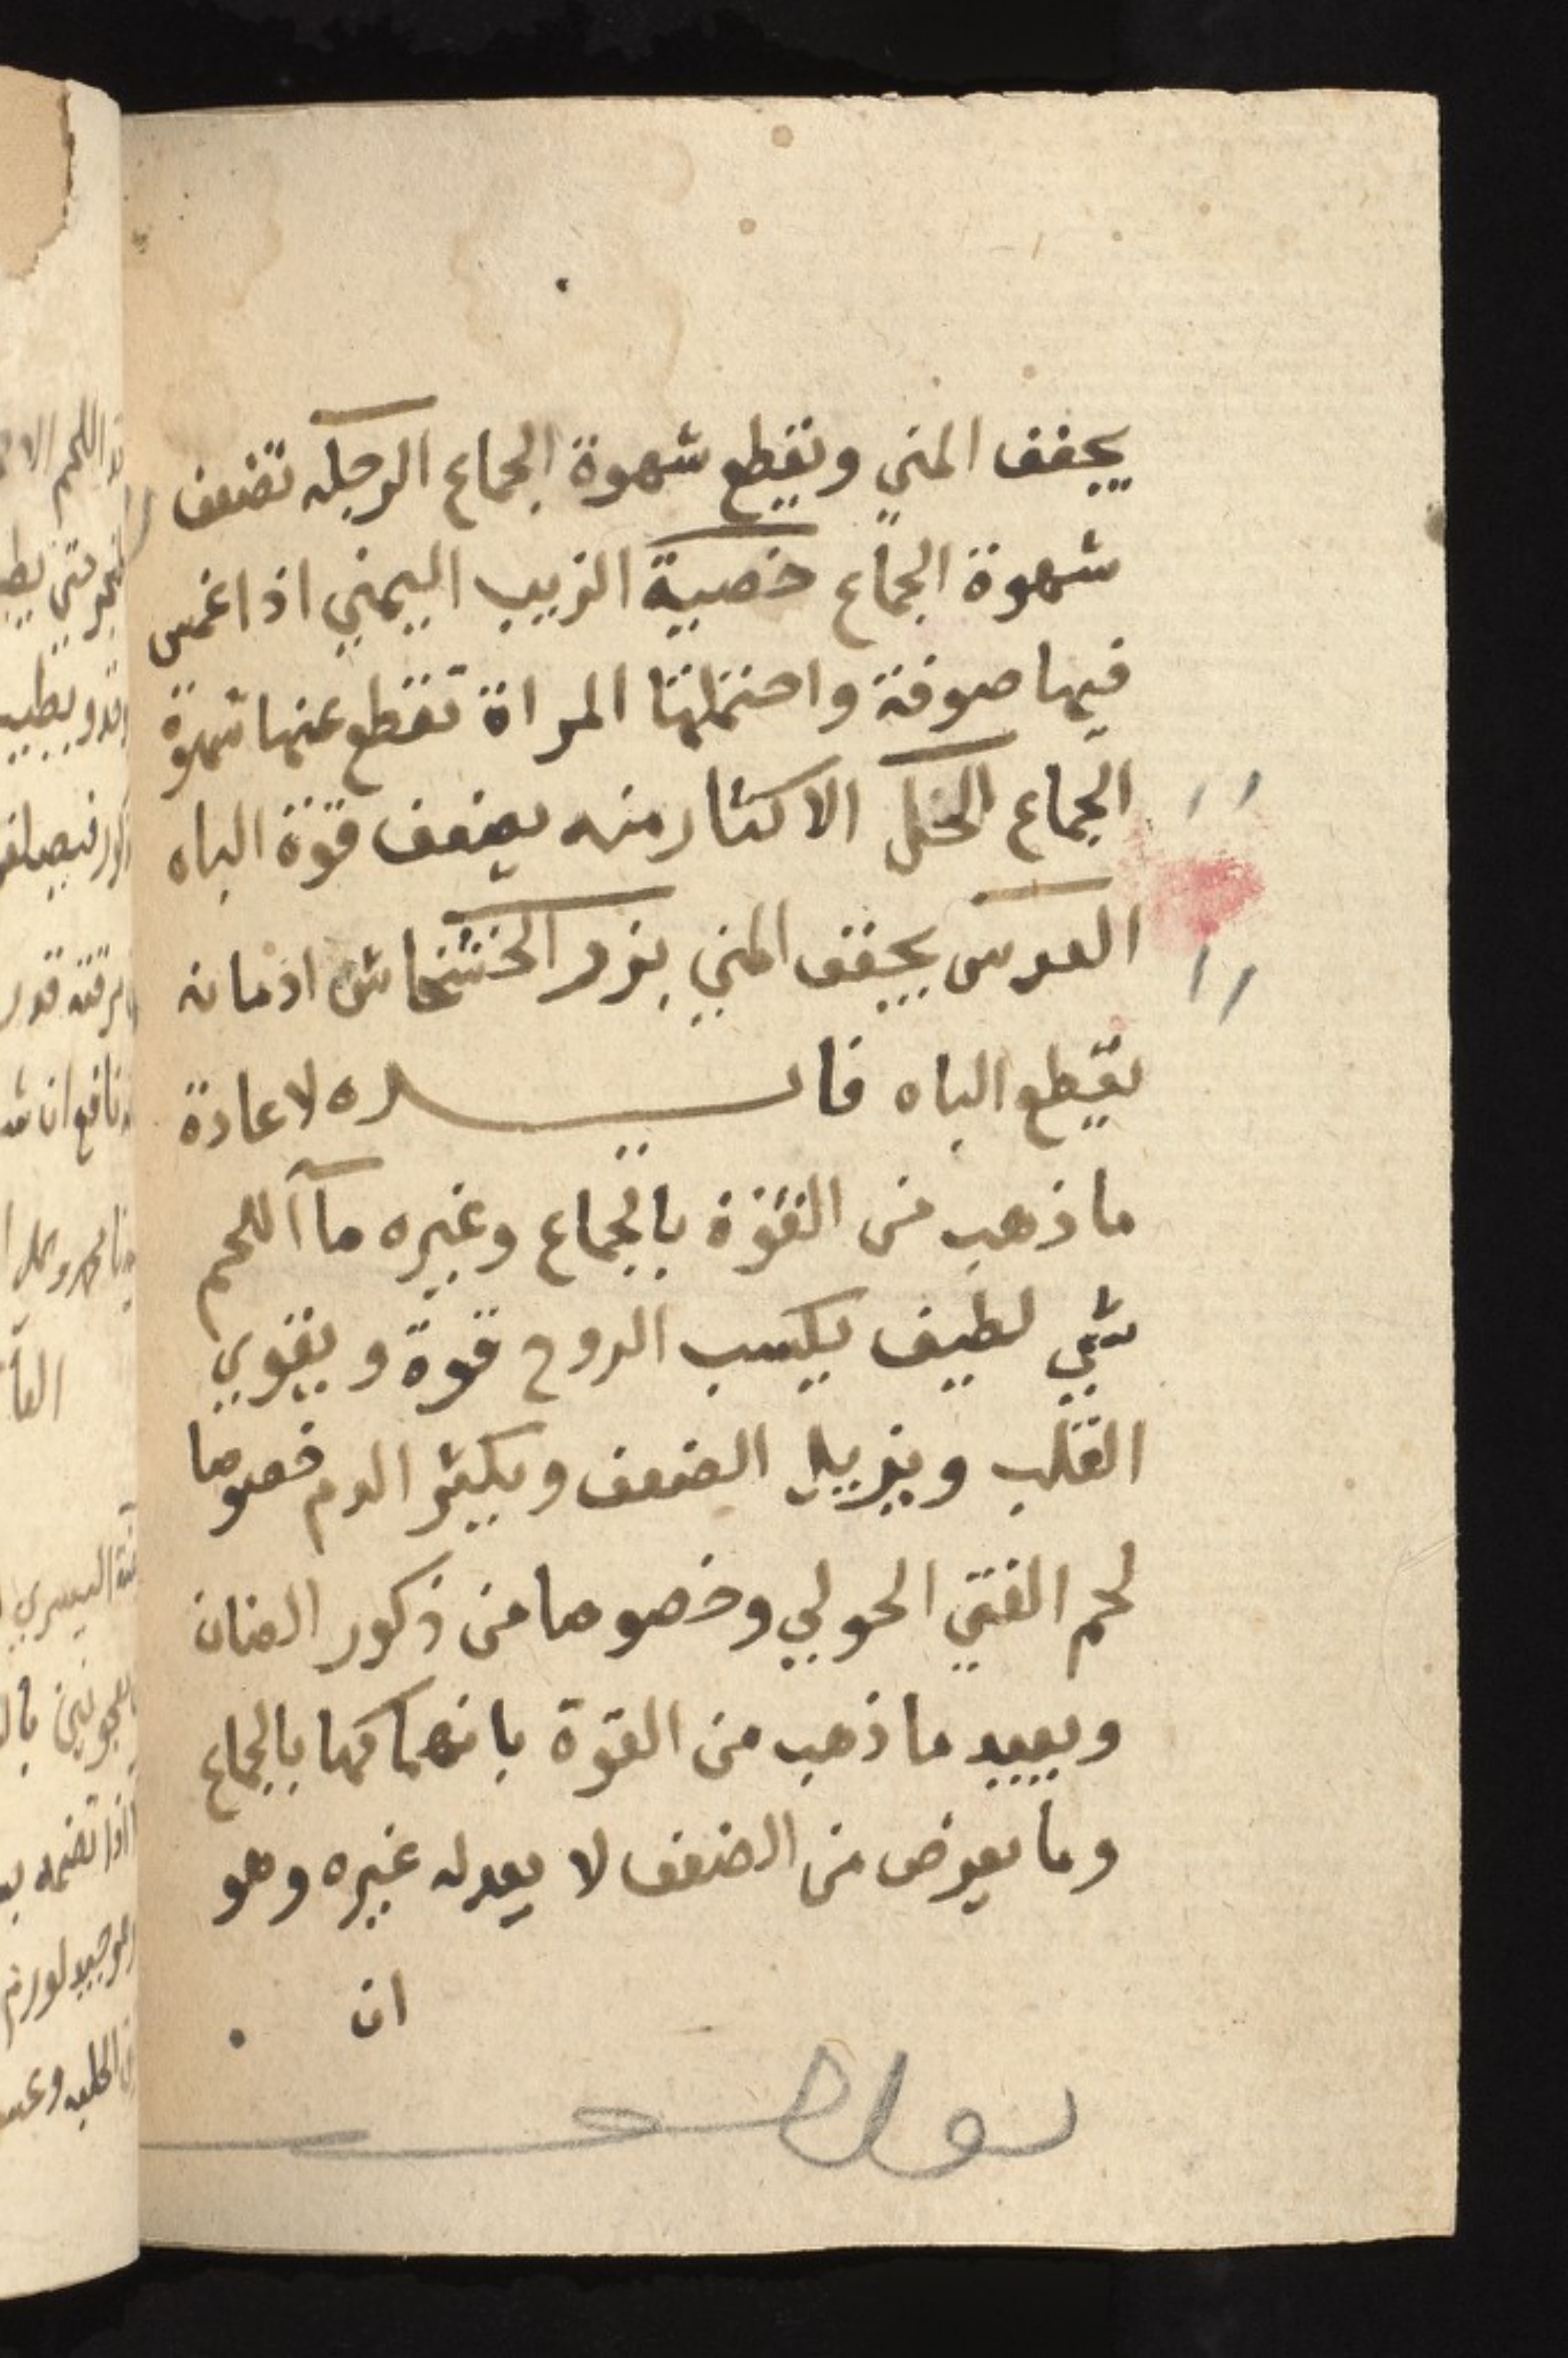 يجفف المني ويقطع شهوة الجماع الرجله تضعف
شهوة الجماع خصية الزبيب اليمني اذا غمس
فيها صوفة واحتملتها المراة تقطع عنها شهوة
الجماع الخل الاكثار منه يضعف قوة الباه
العدس يجفف المني بزر الخشخاش ادمانه
يقطع الباه فايده لاعادة
ما ذهب من القوة بالجماع وغيره مآ اللحم
شي لطيف يكسب الروح قوة ويقوي
القلب ويزيل الضعف ويكثر الدم خصوصا
لحم الفتي الحولي وخصوصا من ذكور الضان
ويعيد ما ذهب من القوة بانهماكها بالجماع
وما يعرض من الضعف لا يعدله غيره وهو
ان